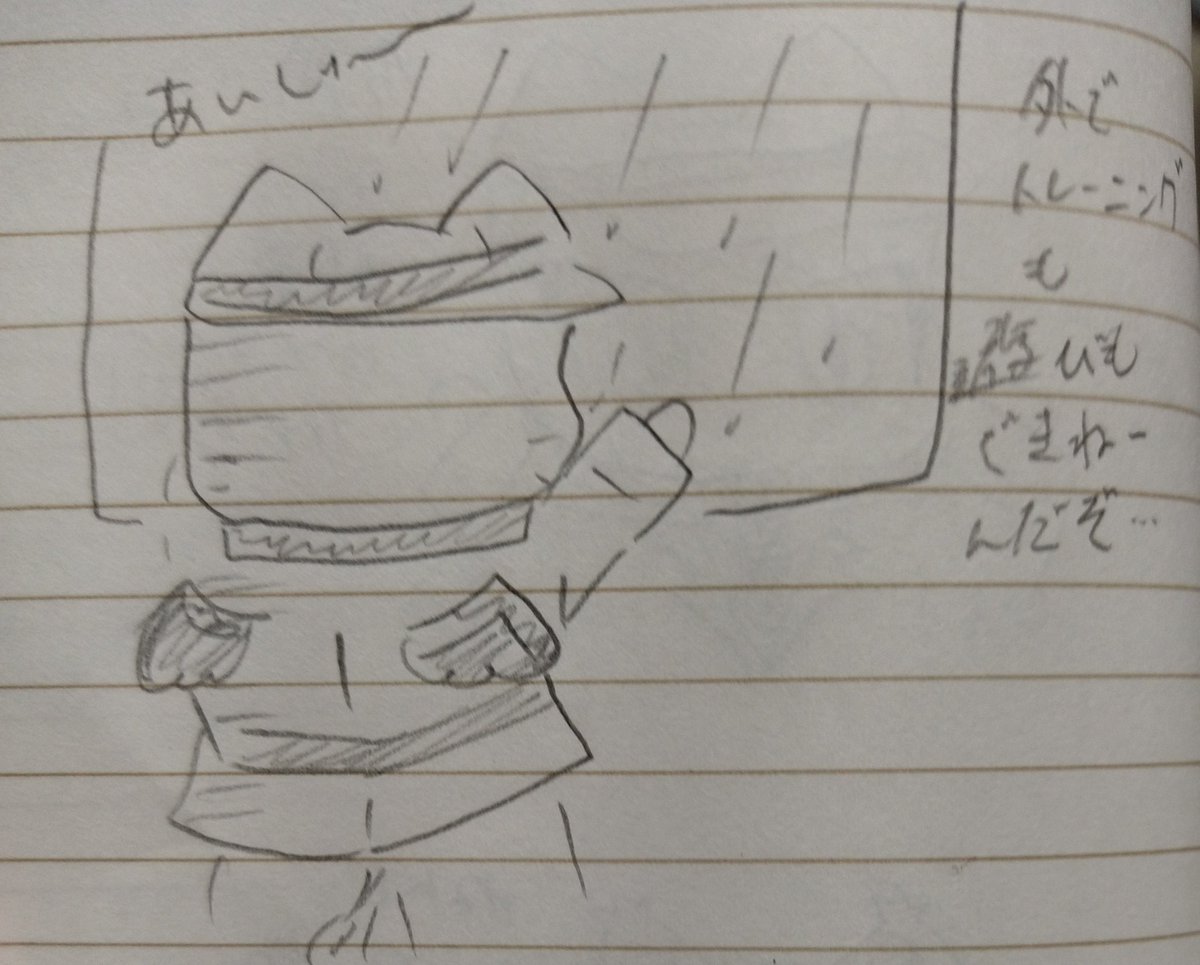 あいしー
外で
トレーニング
も
遊びも
できねー
んだぞ…